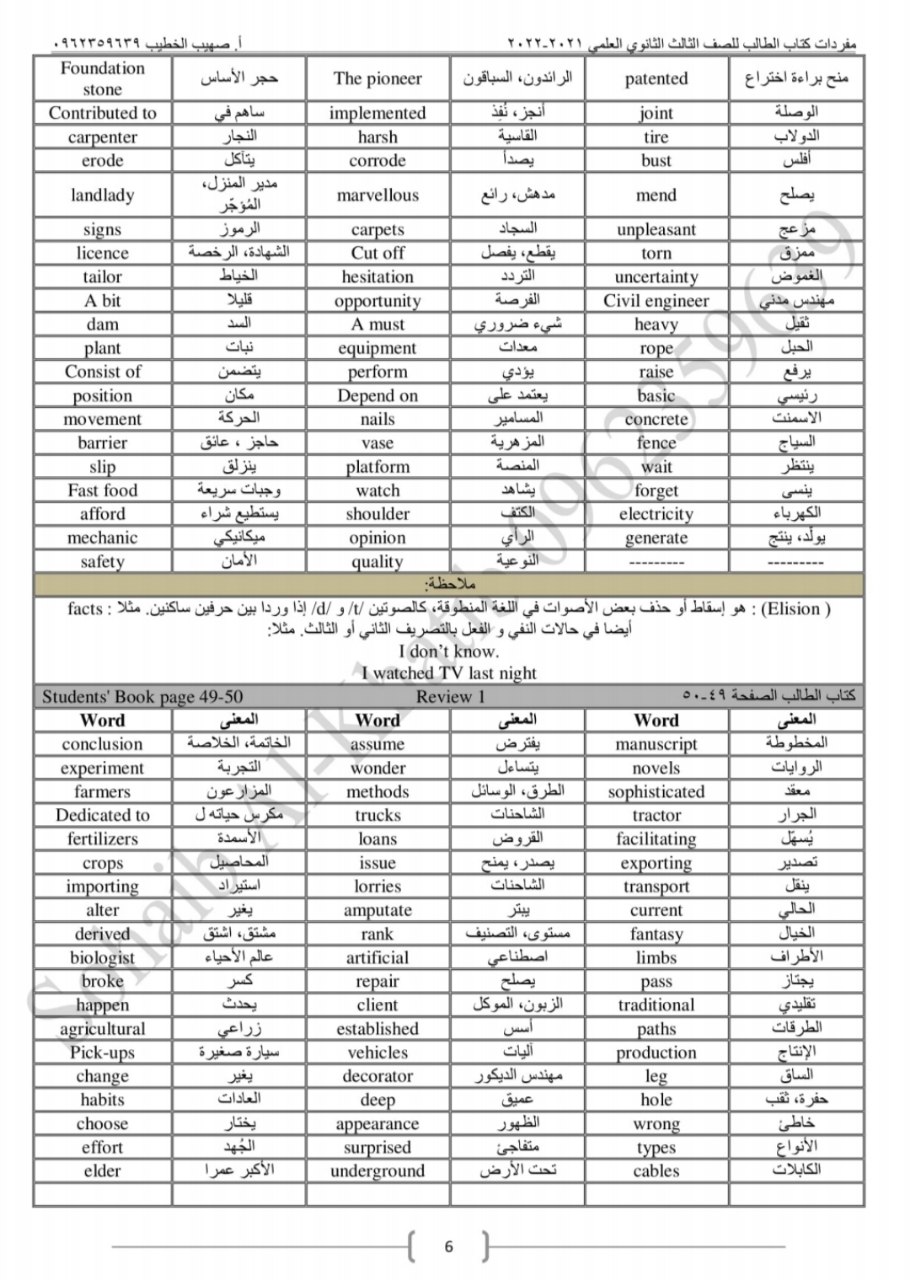 مفردات كتاب الطالب للصف الثالث الثانوي العلمي ٢٠٢١-٢٠٢٢ أ. صهيب الخطيب ٠٩٦٢٣٥٩٦٣٩
Foundation stone حجر الأساس The pioneer الرائدون، السباقون patented منح براءة اختراع
Contributed to ساهم في implemented أنجز، نُفِذ joint الوصلة
carpenter النجار harsh القاسية tire الدولاب
erode يتآكل corrode يصدأ bust أفلس
landlady مدير المنزل، المُؤجّر marvellous مدهش، رائع mend يصلح
signs الرموز carpets السجاد unpleasant مزعج
licence الشهادة، الرخصة Cut off يقطع، يفصل torn ممزق
tailor الخياط hesitation التردد uncertainty الغموض
A bit قليلا opportunity الفرصة Civil engineer مهندس مدني
dam السد A must شيء ضروري heavy ثقيل
plant نبات equipment معدات rope الحبل
Consist of يتضمن perform يؤدي raise يرفع
position مكان Depend on يعتمد على basic رئيسي
movement الحركة nails المسامير concrete الاسمنت
barrier حاجز ، عائق vase المزهرية fence السياج
slip ينزلق platform المنصة wait ينتظر
Fast food وجبات سريعة watch يشاهد forget ينسى
afford يستطيع شراء shoulder الكتف electricity الكهرباء
mechanic ميكانيكي opinion الرأي generate يولّد، ينتج
safety الأمان quality النوعية --------- ---------
ملاحظة:
( Elision) : هو إسقاط أو حذف بعض الأصوات في اللغة المنطوقة، كالصوتين /t/ و /d/ إذا وردا بين حرفين ساكنين. مثلا : facts
أيضا في حالات النفي و الفعل بالتصريف الثاني أو الثالث. مثلا:
I don't know.
I watched TV last night
Students' Book page 49-50 Review 1 كتاب الطالب الصفحة ٤٩-٥٠
Word المعنى Word المعنى Word المعنى
conclusion الخاتمة، الخلاصة assume يفترض manuscript المخطوطة
experiment التجربة wonder يتساءل novels الروايات
farmers المزارعون methods الطرق، الوسائل sophisticated معقد
Dedicated to مكرس حياته ل trucks الشاحنات tractor الجرار
fertilizers الأسمدة loans القروض facilitating يُسهّل
crops المحاصيل issue يصدر، يمنح exporting تصدير
importing استيراد lorries الشاحنات transport ينقل
alter يغير amputate يبتر current الحالي
derived مشتق، اشتق rank مستوى، التصنيف fantasy الخيال
biologist عالم الأحياء artificial اصطناعي limbs الأطراف
broke كسر repair يصلح pass يجتاز
happen يحدث client الزبون، الموكل traditional تقليدي
agricultural زراعي established أسس paths الطرقات
Pick-ups سيارة صغيرة vehicles آليات production الإنتاج
change يغير decorator مهندس الديكور leg الساق
habits العادات deep عميق hole حفرة، ثقب
choose يختار appearance الظهور wrong خاطئ
effort الجُهد surprised متفاجئ types الأنواع
elder الأكبر عمرا underground تحت الأرض cables الكابلات
6
Sohaib Al-Khatib 0962359639